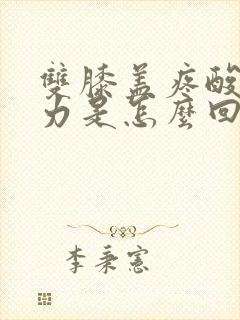 雙膝蓋疼酸
力是怎麼回
李秉憲